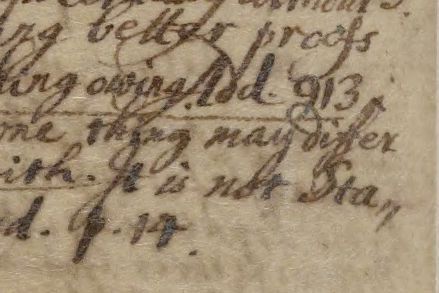 ng better proofs
hing owing. Ibd. 913.
ome thing may differ
with. It is not Sta„
d. p. 14.